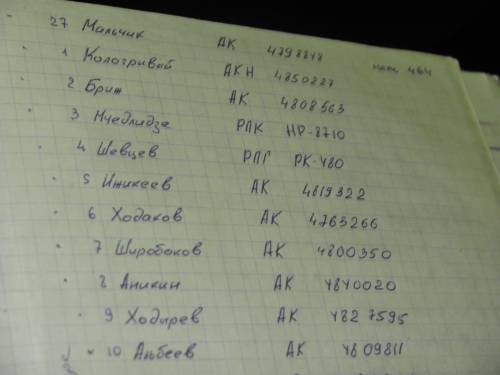 27 Мальчик АК 4798848
1 Кологривай АКН 4850227
2 Бриж АК 4808563
3 Мчедлидзе РПК НР-8710
4 Шевцев РПГ РК-480
5 Ижикеев АК 4819322
6 Ходаков АК 4763266
7 Широбоков АК 4800350
8 Аникин АК 4840020
9 Ходырев АК 4827595
10 Альбеев АК 4809811